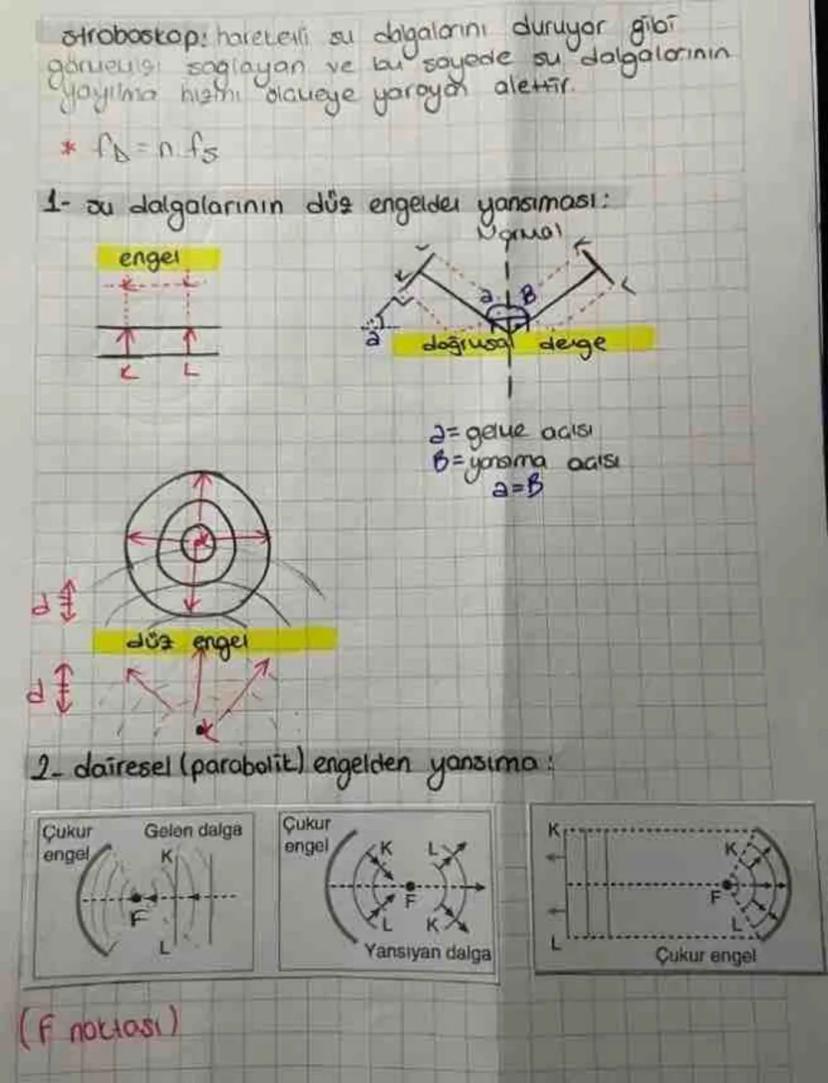 stroboskop: hareketli su dalgalarını duruyor gibi
görmemizi sağlayan ve bu sayede su dalgalarının
yayılma hızını ölçmeye yarayan alettir.
* fD = n.fs
1- su dalgalarının düz engelden yansıması:
engel
Normal
a B
a
doğrusal dalga
K L
a = gelme açısı
B = yansıma açısı
a = B
K
d
düz engel
d
K
2- dairesel (parabolik) engelden yansıma:
Çukur engel
Gelen dalga
K
F
L
Çukur engel
K L
F
L K
Yansıyan dalga
K K
F
L L
Çukur engel
(F noktası)